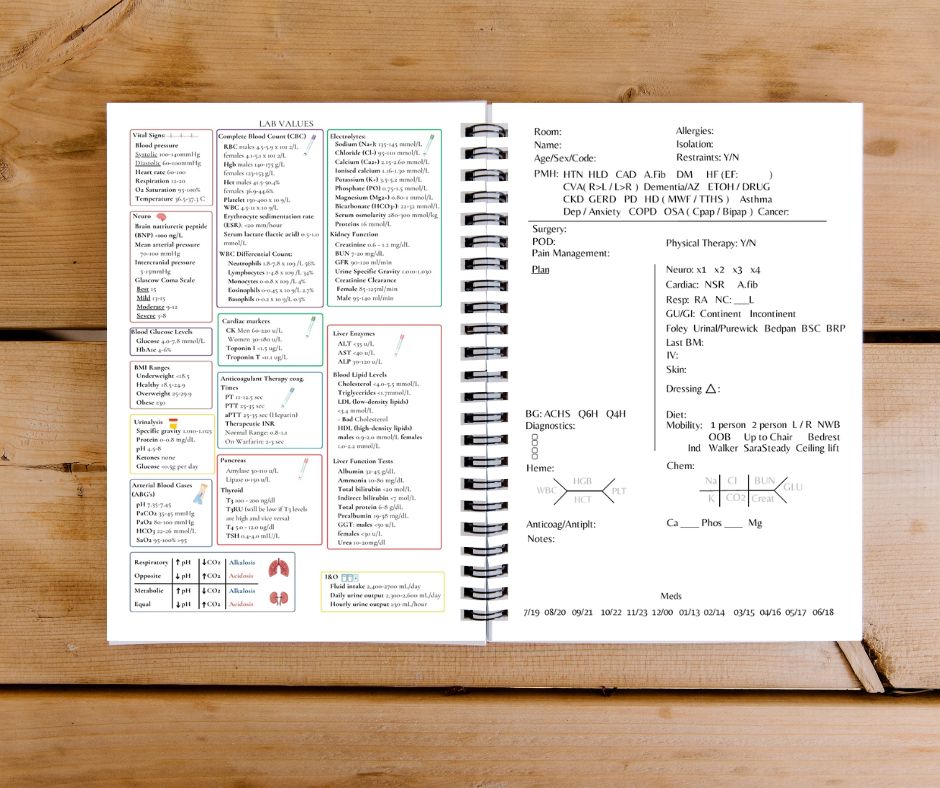 LAB VALUES
Vital Signs:
Blood pressure
Systolic 100-140mmHg
Diastolic 60-100mmHg
Heart rate 60-100
Respiration 12-20
O2 Saturation 95-100%
Temperature 36.5-37.3 C
Neuro
Brain natriuretic peptide
(BNP) <100 ng/L
Mean arterial pressure
70-100 mmHg
Intercranial pressure
5-15mmHg
Glascow Coma Scale
Best 15
Mild 13-15
Moderate 9-12
Severe 3-8
Blood Glucose Levels
Glucose 4.0-7.8 mmol/L
HbA1c 4-6%
BMI Ranges
Underweight <18.5
Healthy 18.5-24.9
Overweight 25-29.9
Obese ≥30
Urinalysis
Specific gravity 1.010-1.025
Protein 0-0.8 mg/dL
pH 4.5-8
Ketones none
Glucose <0.5g per day
Arterial Blood Gases
(ABG's)
pH 7.35-7.45
PaCO2 35-45 mmHg
PaO2 80-100 mmHg
HCO3 22-26 mmol/L
SaO2 95-100% >95
Complete Blood Count (CBC)
RBC males 4.5-5.9 x 1012/L
females 4.1-5.1 x 1012/L
Hgb males 140-175 g/L
females 123-153 g/L
Hct males 41.5-50.4%
females 36.9-44.6%
Platelet 150-400 x 10 9/L
WBC 4.5-11 x 10 9/L
Erythrocyte sedimentation rate
(ESR): <20 mm/hour
Serum lactate (lactic acid) 0.5-1.0
mmol/L
WBC Differential Count:
Neutrophils 1.8-7.8 x 10 9/L 56%
Lymphocytes 1-4.8 x 10 9/L 34%
Monocytes 0-0.8 x 10 9/L 4%
Eosinophils 0-0.45 x 10 9/L 2.7%
Basophils 0-0.2 x 10 9/L 0.3%
Cardiac markers
CK Men 60-220 u/L
Women 30-180 u/L
Toponin I <1.5 ug/L
Troponin T <0.1 ug/L
Anticoagulant Therapy coag.
Times
PT 11-12.5 sec
PTT 25-35 sec
aPTT 25-35 sec (Heparin)
Therapeutic INR
Normal Range: 0.8-1.1
On Warfarin: 2-3 sec
Pancreas
Amylase 30-110 u/L
Lipase 0-150 u/L
Thyroid
T3 100 - 200 ng/dl
T3RU (will be low if T3 levels
are high and vice versa)
T4 5.0 - 12.0 ug/dl
TSH 0.4-4.0 mIU/L
Electrolytes:
Sodium (Na+): 135-145 mmol/L
Chloride (Cl-) 95-110 mmol/L
Calcium (Ca2+) 2.15-2.60 mmol/L
Ionised calcium 1.16-1.30 mmol/L
Potassium (K+) 3.5-5.2 mmol/L
Phosphate (PO) 0.75-1.5 mmol/L
Magnesium (Mg2+) 0.80-1 mmol/L
Bicarbonate (HCO3-): 22-32 mmol/L
Serum osmolarity 280-300 mmol/kg
Proteins 16 mmol/L
Kidney Function
Creatinine 0.6 - 1.2 mg/dL
BUN 7-20 mg/dL
GFR 90-120 ml/min
Urine Specific Gravity 1.010-1.030
Creatinine Clearance
Female 85-125ml/min
Male 95-140 ml/min
Liver Enzymes
ALT <35 u/L
AST <40 u/L
ALP 30-120 u/L
Blood Lipid Levels
Cholesterol <4.0-5.5 mmol/L
Triglycerides <1.7mmol/L
LDL (low-density lipids)
<3.4 mmol/L
- Bad Cholesterol
HDL (high-density lipids)
males 0.9-2.0 mmol/L females
1.0-2.2 mmol/L
Liver Function Tests
Albumin 32-45 g/dL
Ammonia 10-80 mg/dL
Total bilirubin <20 mmol/L
Indirect bilirubin <7 mol/L
Total protein 6-8 g/dL
Prealbumin 19-38 mg/dL
GGT: males <50 u/L
females <30 u/L
Urea 10-20mg/dl
Respiratory ↑pH ↓CO2 Alkalosis
Opposite ↓pH ↑CO2 Acidosis
Metabolic ↑pH ↑CO2 Alkalosis
Equal ↓pH ↓CO2 Acidosis
I&O
Fluid intake 2,400-2700 mL/day
Daily urine output 2,300-2,600 mL/day
Hourly urine output ≥30 mL/hour
Room: Allergies:
Name: Isolation:
Age/Sex/Code: Restraints: Y/N
PMH: HTN HLD CAD A.Fib DM HF (EF: )
CVA( R>L / L>R ) Dementia/AZ ETOH / DRUG
CKD GERD PD HD ( MWF / TTHS ) Asthma
Dep / Anxiety COPD OSA ( Cpap / Bipap ) Cancer:
Surgery:
POD: Physical Therapy: Y/N
Pain Management:
Plan
Neuro: x1 x2 x3 x4
Cardiac: NSR A.fib
Resp: RA NC: ___L
GU/GI: Continent Incontinent
Foley Urinal/Purewick Bedpan BSC BRP
Last BM:
IV:
Skin:
Dressing △ :
BG: ACHS Q6H Q4H
Diagnostics:
Diet:
Mobility: 1 person 2 person L / R NWB
OOB Up to Chair Bedrest
Ind Walker SaraSteady Ceiling lift
Heme:
WBC HGB PLT
HCT
Chem:
Na Cl BUN GLU
K CO2 Creat
Anticoag/Antiplt:
Ca ____ Phos ____ Mg
Notes:
Meds
7/19 08/20 09/21 10/22 11/23 12/00 01/13 02/14 03/15 04/16 05/17 06/18